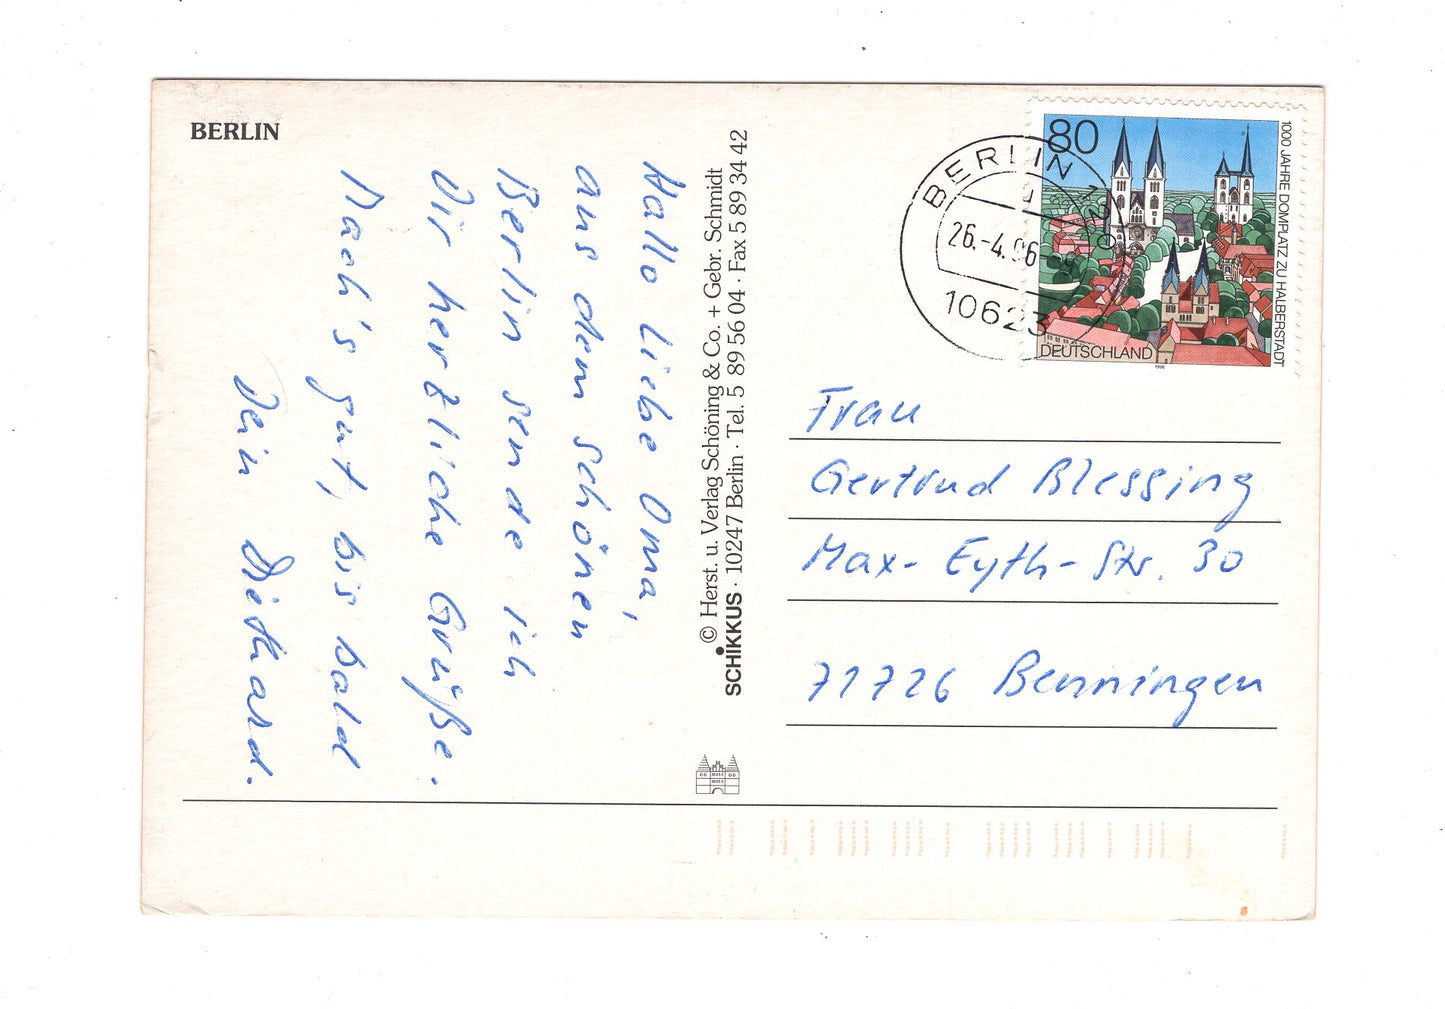 BERLIN
Hallo liebe Oma,
aus dem schönen
Berlin sende ich
Dir herzliche Grüße.
Mach's gut, bis bald
Dein Diethard.
© Herst. u. Verlag Schöning & Co. + Gebr. Schmidt
SCHIKKUS · 10247 Berlin · Tel. 5 89 56 04 · Fax 5 89 34 42
BERLIN 12
26.-4.96
10623
80
1000 JAHRE DOMPLATZ ZU HALBERSTADT
DEUTSCHLAND
1996
Frau
Gertrud Blessing
Max-Eyth-Str. 30
71726 Benningen